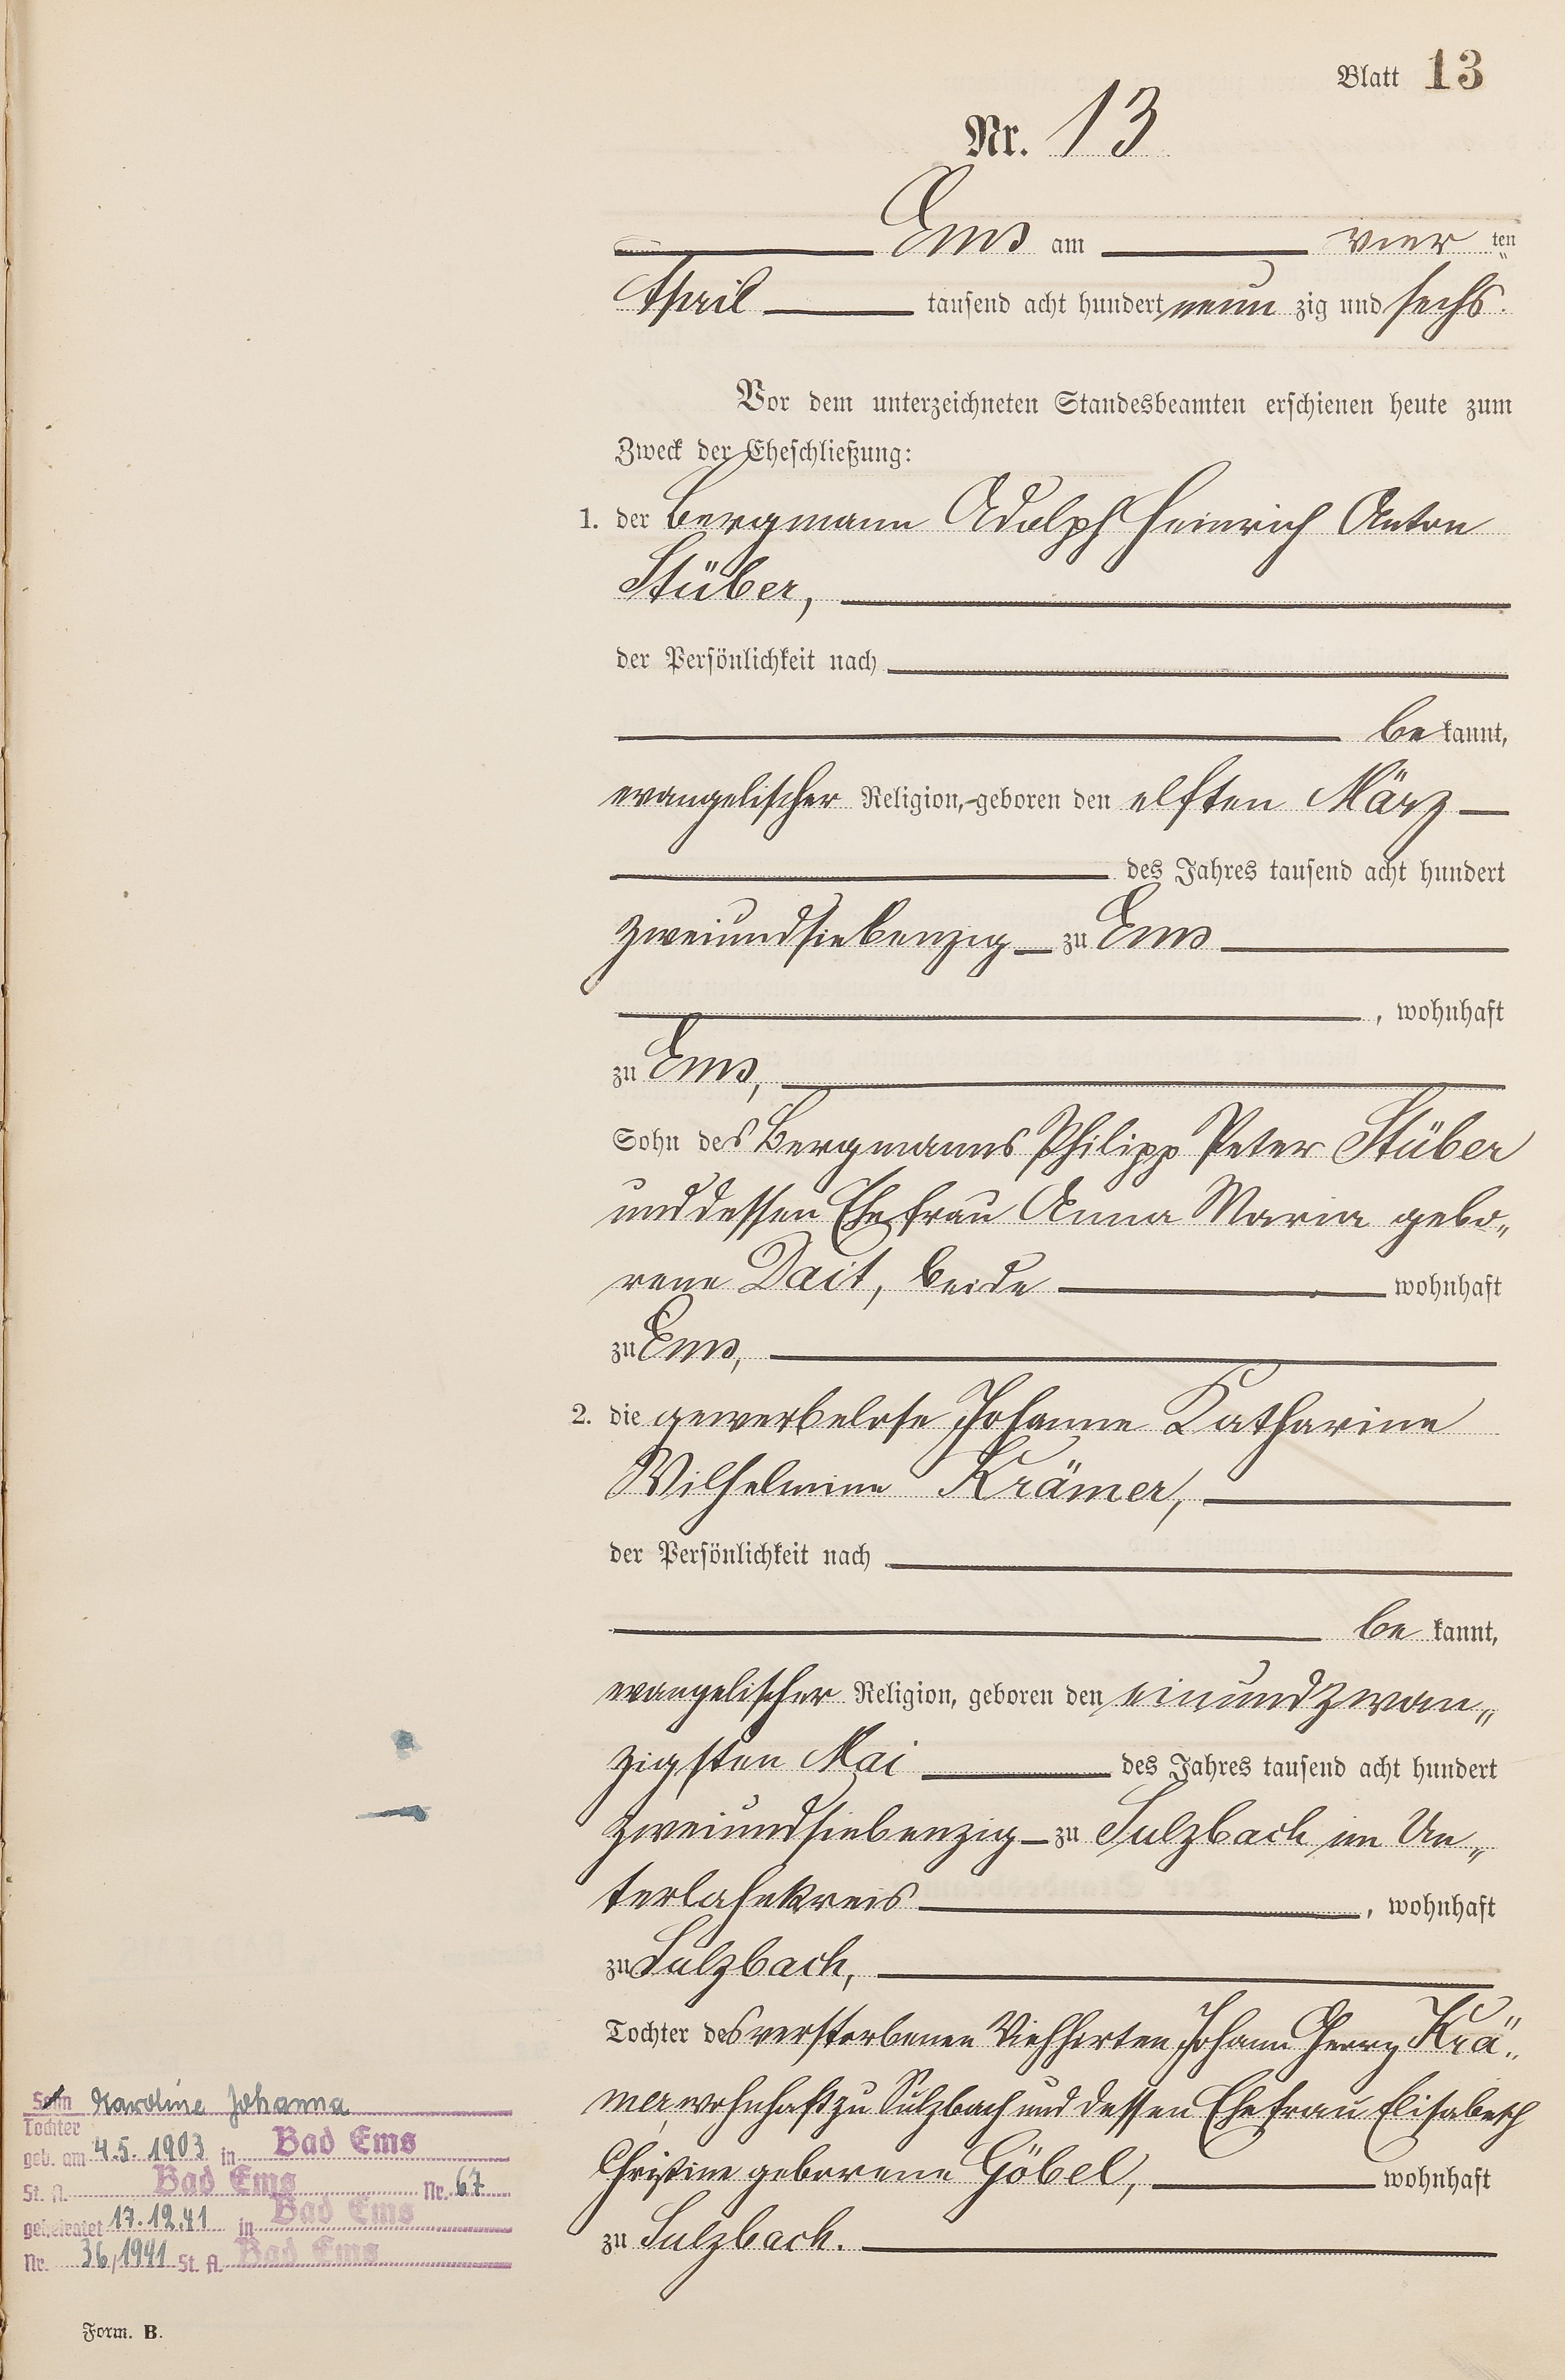 Blatt 13
Nr. 13
Ems am vier ten
April tausend acht hundert neun zig und sechs.
Vor dem unterzeichneten Standesbeamten erschienen heute zum
Zweck der Eheschließung:
1. der Bergmann Adolph Heinrich Anton
Stüber,
der Persönlichkeit nach
be kannt,
evangelischer Religion, geboren den elften März
des Jahres tausend acht hundert
zweiundsiebenzig zu Ems
, wohnhaft
zu Ems,
Sohn des Bergmanns Philipp Peter Stüber
und dessen Ehefrau Anna Maria gebo„
rene Dait, beide wohnhaft
zu Ems,
2. die gewerbelose Johanne Katharine
Wilhelmine Krämer,
der Persönlichkeit nach
be kannt,
evangelischer Religion, geboren den einundzwan„
zigsten Mai des Jahres tausend acht hundert
zweiundsiebenzig zu Sulzbach im Un„
terlahnkreis , wohnhaft
zu Sulzbach,
Tochter des verstorbenen Viehhirten Johann Georg Krä„
mer, wohnhaft zu Sulzbach und dessen Ehefrau Elisabeth
Christine geborene Göbel, wohnhaft
zu Sulzbach.
Sohn Karoline Johanna
Tochter
geb. am 4.5. 1903 in Bad Ems
St. A. Bad Ems Nr. 67
geheiratet 17.12.41 in Bad Ems
Nr. 36/1941 St. A. Bad Ems
Form. B.